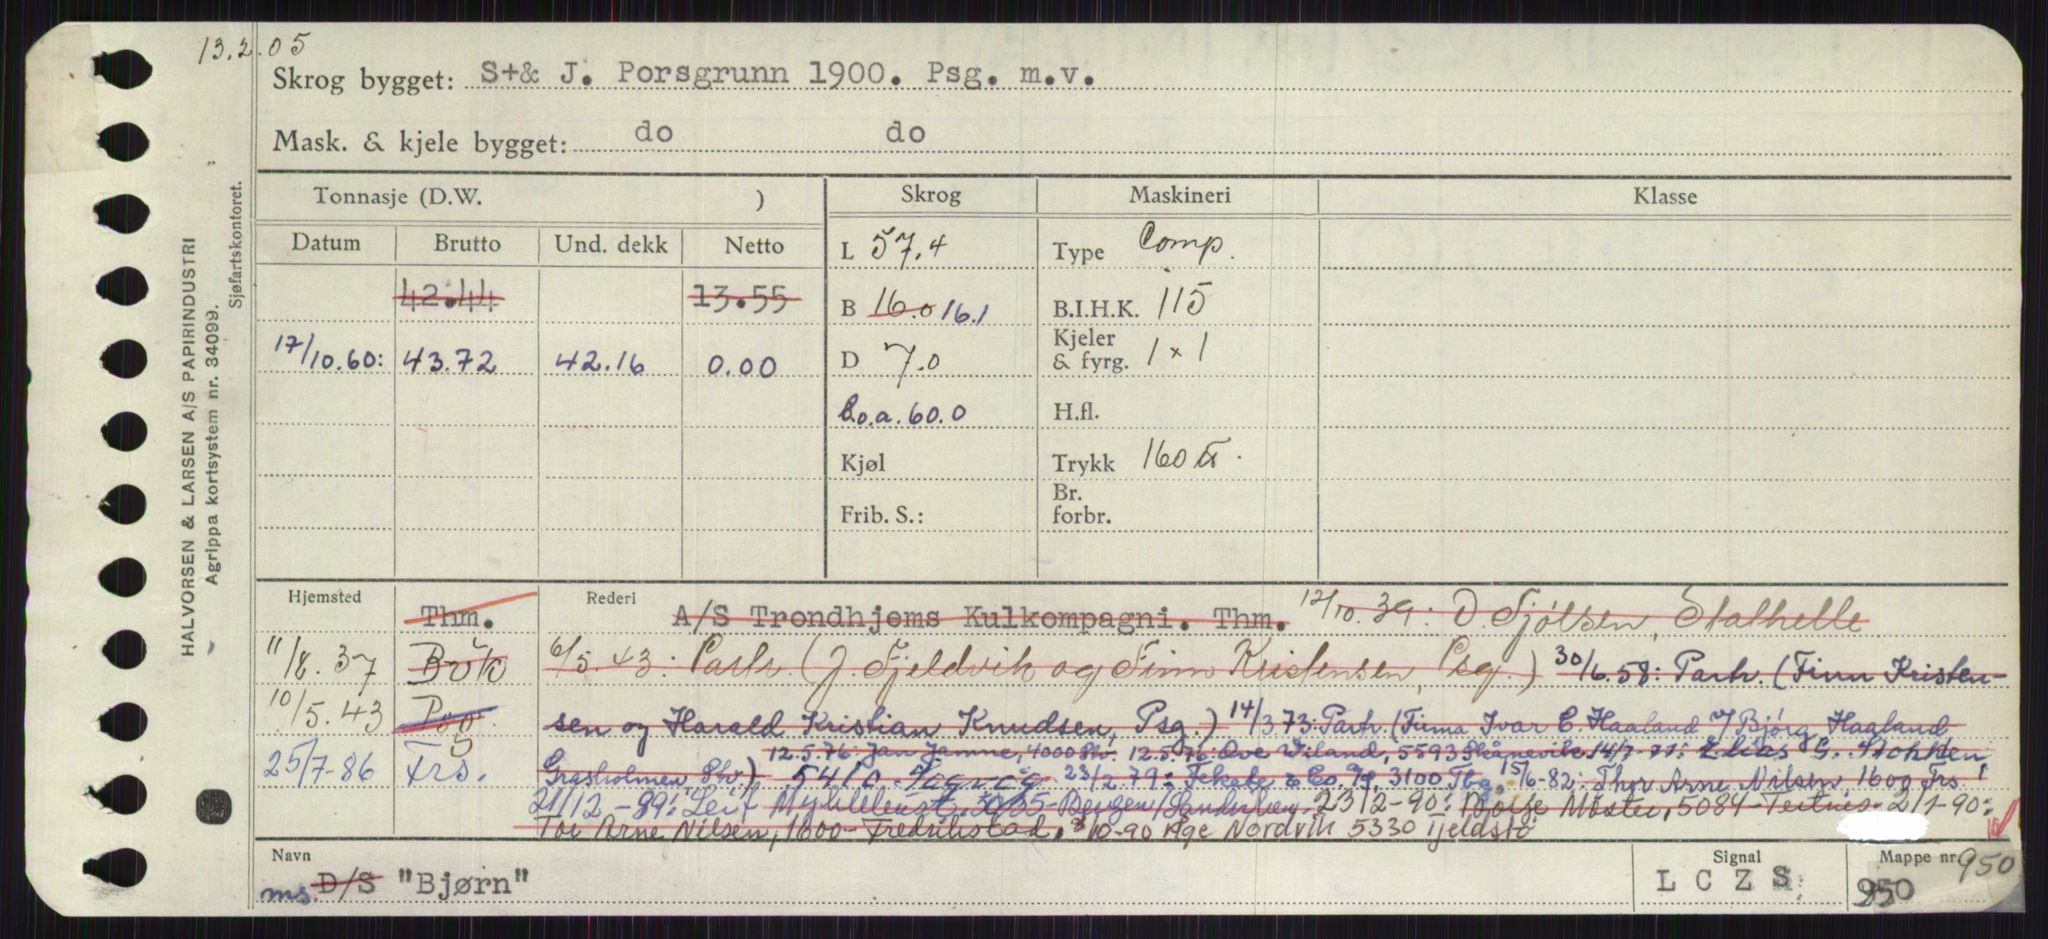 13.2.05
Skrog bygget: S+& J. Porsgrunn 1900. Psg. m.v.
Mask. & kjele bygget: do do
HALVORSEN & LARSEN A/S PAPIRINDUSTRI
Agrippa kortsystem nr. 34099.
Sjøfartskontoret.
Tonnasje (D.W. ) Skrog Maskineri Klasse
Datum Brutto Und. dekk Netto
L 57.4 Type Comp.
42.44 13.55
B 16.0 16.1 B.I.H.K. 115
17/10.60: 43.72 42.16 0.00
D 7.0 Kjeler & fyrg. 1 x 1
Lo.a. 60.0 H.fl.
Kjøl Trykk 160
Frib. S.: Br. forbr.
Hjemsted Thm. Rederi A/S Trondhjems Kulkompagni. Thm. 12/10.39. D. Tjølsen, Stathelle
11/8.37 6/5.43: Partr. (J. Fjeldvik og Finn Kristensen, Psg.) 30/6.58: Partr. (Finn Kristen-
10/5.43 Psg. sen og Harald Kristian Knudsen, Psg.) 14/3.73: Partr. (Firma Ivar E. Haaland v/ Bjørg Haaland
12.5.76: Jan Jamne, 4000 Stv. 12.5.76: Ove Wiland, 5593 Skånevik. 14/7-77: Elias G. Stokken
25/7-86 Frs. Grasholmen, Stv.) 5410 Sagvåg 23/2.79: Fekete & Co. 3100 Tbg. 15/6-82: Thor Arne Nilsen, 1600 Frs.
21/12-89: Leif Myklebust, Bergen 23/2-90: Møster, 5084 Tertnes 2/1-90:
Tor Arne Nilsen, 1600-Fredrikstad. 10-90 Åge Nordvik 5330 Tjeldstø
Navn ms. D/S "Bjørn" Signal L C Z S. Mappe nr. 950
950